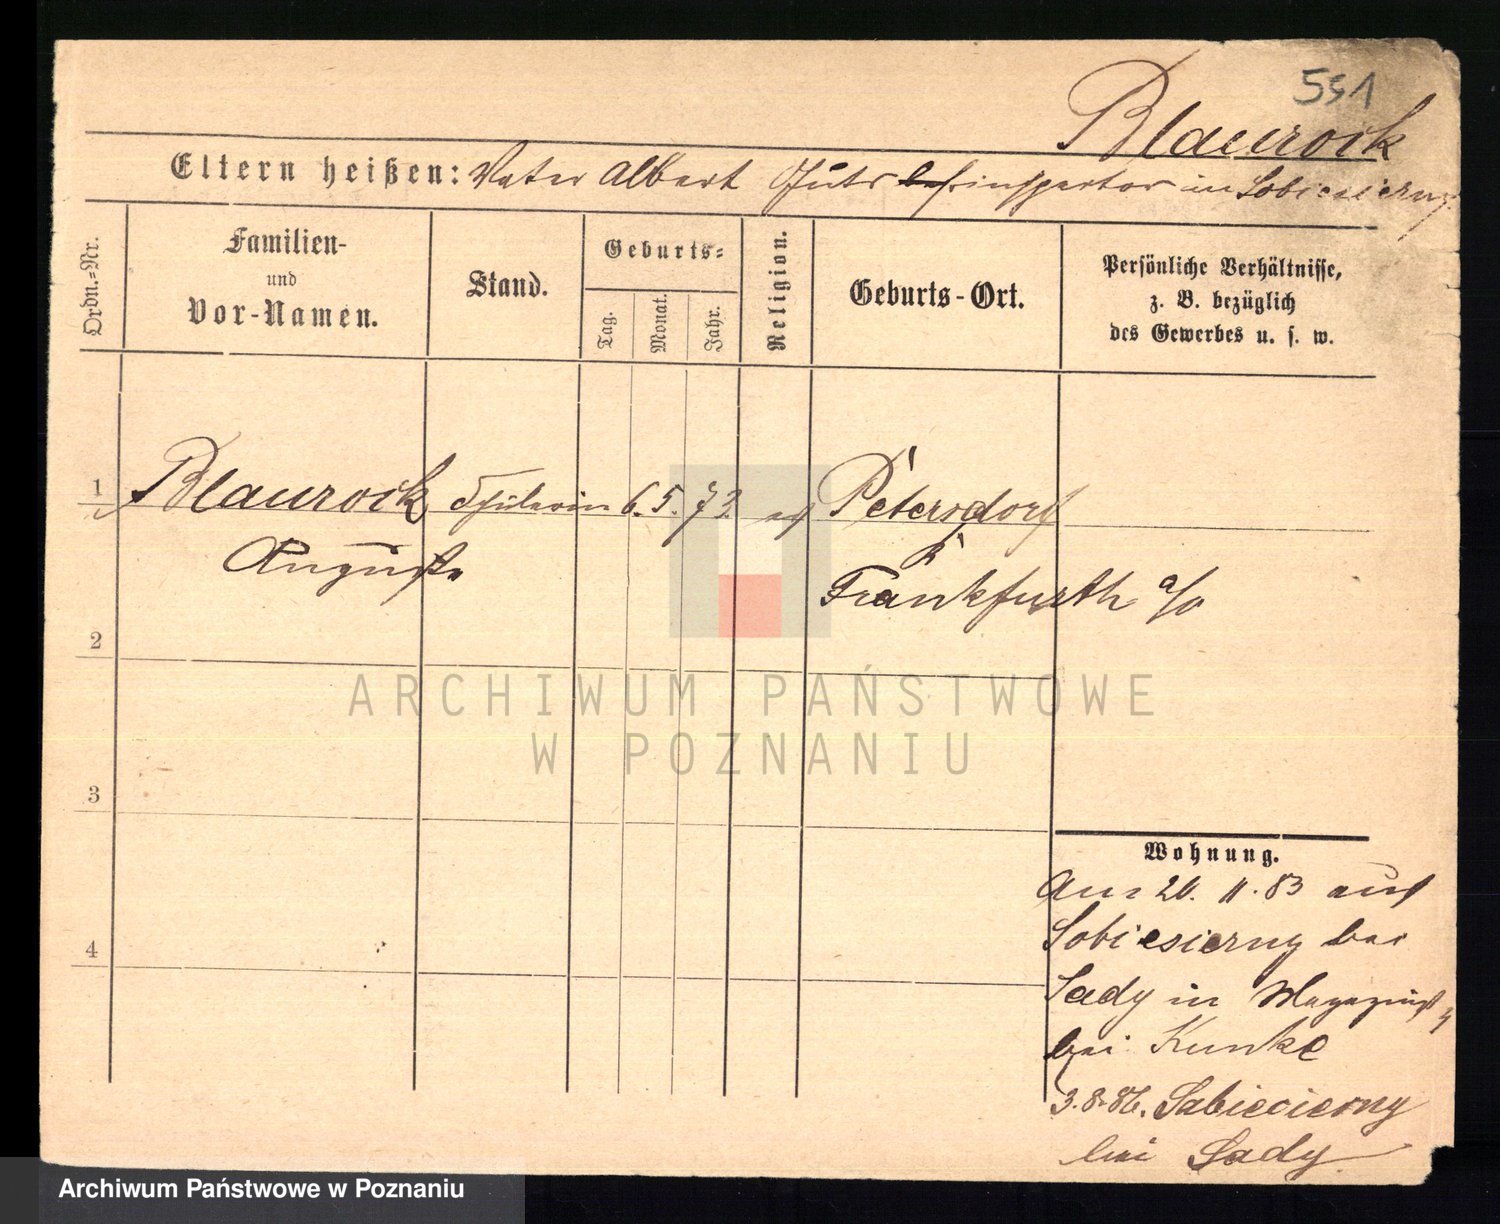 591
Blaurock
Eltern heißen: Vater Albert Gutsinspector in Sobiesierny.
Ordn.-Nr.
Familien-
und
Vor-Namen.
Stand.
Geburts-
Tag.
Monat.
Jahr.
Religion.
Geburts-Ort.
Persönliche Verhältnisse,
z. B. bezüglich
des Gewerbes u. s. w.
1 Blaurock Schülerin 6. 5. 73. ev Petersdorf
Auguste
Frankfurth a/o
2
3
4
ARCHIWUM PAŃSTWOWE
W POZNANIU
Wohnung.
Am 26. 11. 83 aus
Sobiesierny bei
Sady in Magazinst
bei Kunke
3.8.86. Sabiecierny
bei Sady
Archiwum Państwowe w Poznaniu